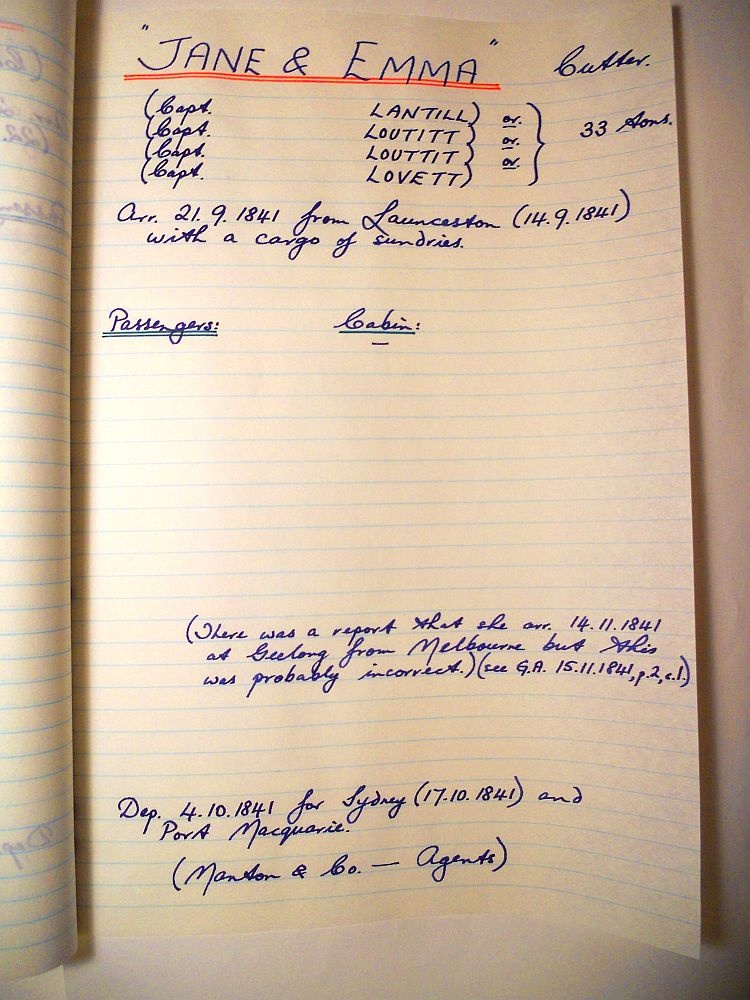 "JANE & EMMA" Cutter.
(Capt. LANTILL) or.
(Capt. LOUTITT) or. 33 tons.
(Capt. LOUTTIT) or.
(Capt. LOVETT)
Arr. 21.9.1841 from Launceston (14.9.1841)
with a cargo of sundries.
Passengers: Cabin:
—
(There was a report that she arr. 14.11.1841
at Geelong from Melbourne but this
was probably incorrect.) (see G.A. 15.11.1841, p.2, c.1.)
Dep. 4.10.1841 for Sydney (17.10.1841) and
Port Macquarie.
(Manton & Co. — Agents)